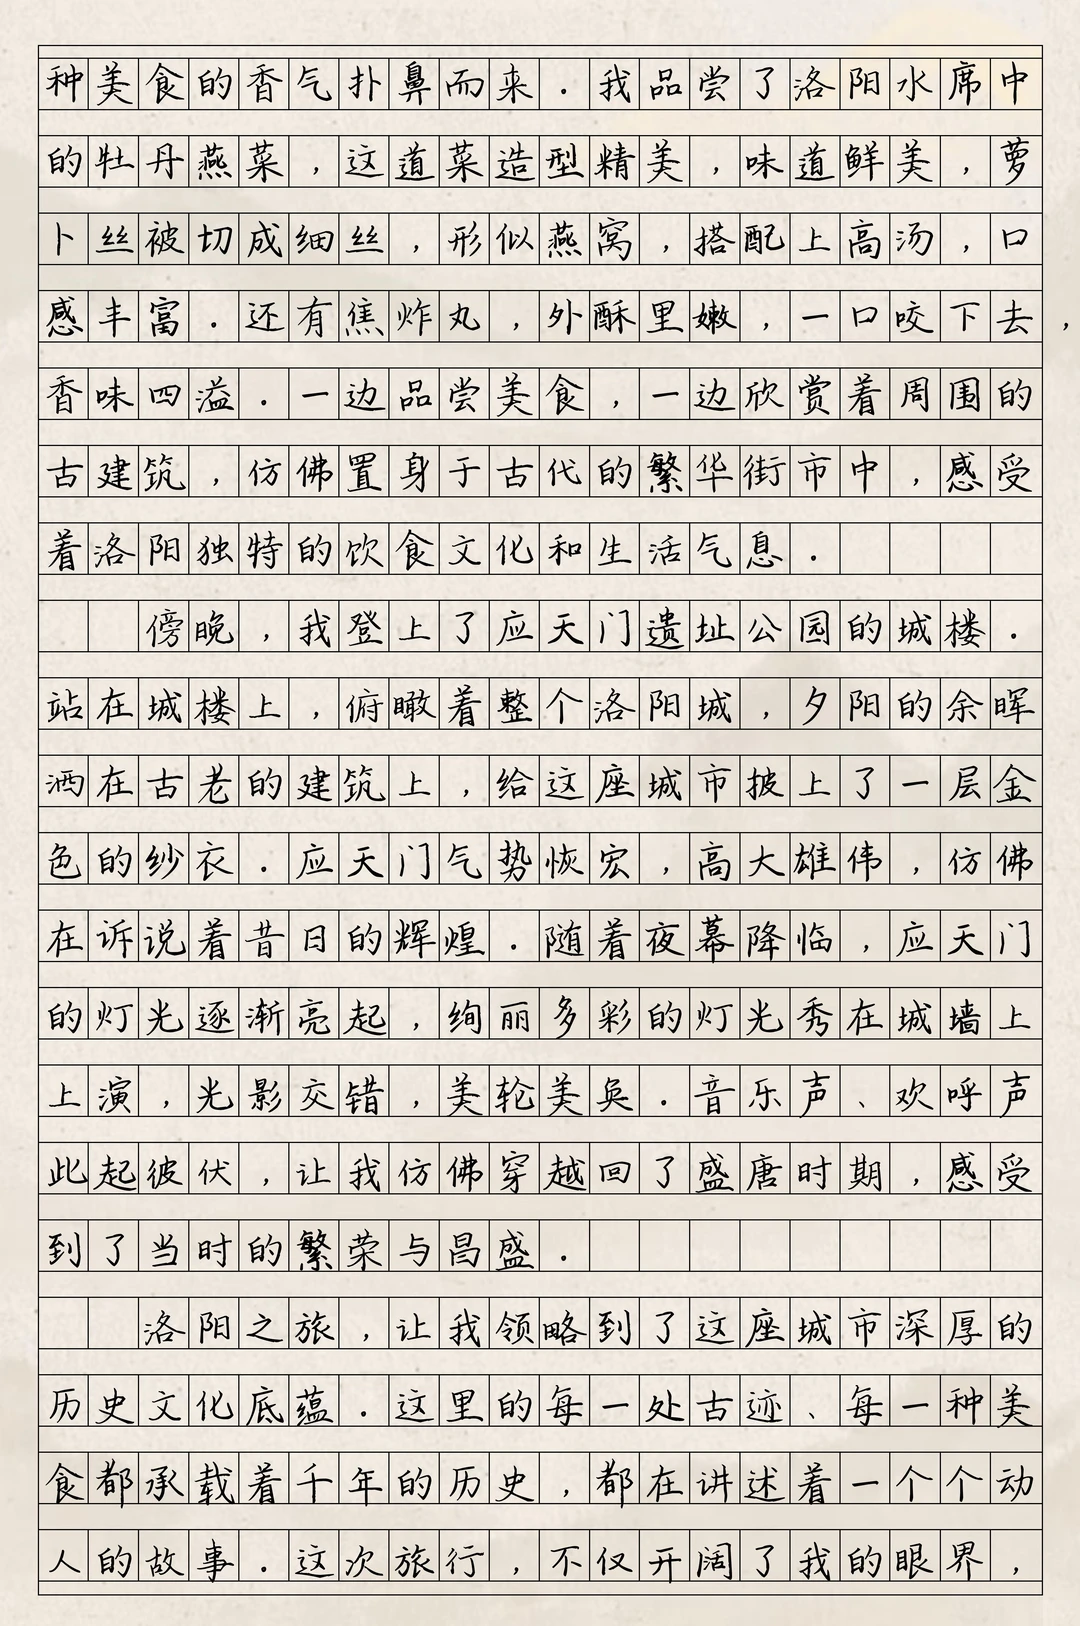 种美食的香气扑鼻而来.我品尝了洛阳水席中
的牡丹燕菜,这道菜造型精美,味道鲜美,萝
卜丝被切成细丝,形似燕窝,搭配上高汤,口
感丰富.还有焦炸丸,外酥里嫩,一口咬下去,
香味四溢.一边品尝美食,一边欣赏着周围的
古建筑,仿佛置身于古代的繁华街市中,感受
着洛阳独特的饮食文化和生活气息.
傍晚,我登上了应天门遗址公园的城楼.
站在城楼上,俯瞰着整个洛阳城,夕阳的余晖
洒在古老的建筑上,给这座城市披上了一层金
色的纱衣.应天门气势恢宏,高大雄伟,仿佛
在诉说着昔日的辉煌.随着夜幕降临,应天门
的灯光逐渐亮起,绚丽多彩的灯光秀在城墙上
上演,光影交错,美轮美奂.音乐声、欢呼声
此起彼伏,让我仿佛穿越回了盛唐时期,感受
到了当时的繁荣与昌盛.
洛阳之旅,让我领略到了这座城市深厚的
历史文化底蕴.这里的每一处古迹、每一种美
食都承载着千年的历史,都在讲述着一个个动
人的故事.这次旅行,不仅开阔了我的眼界,